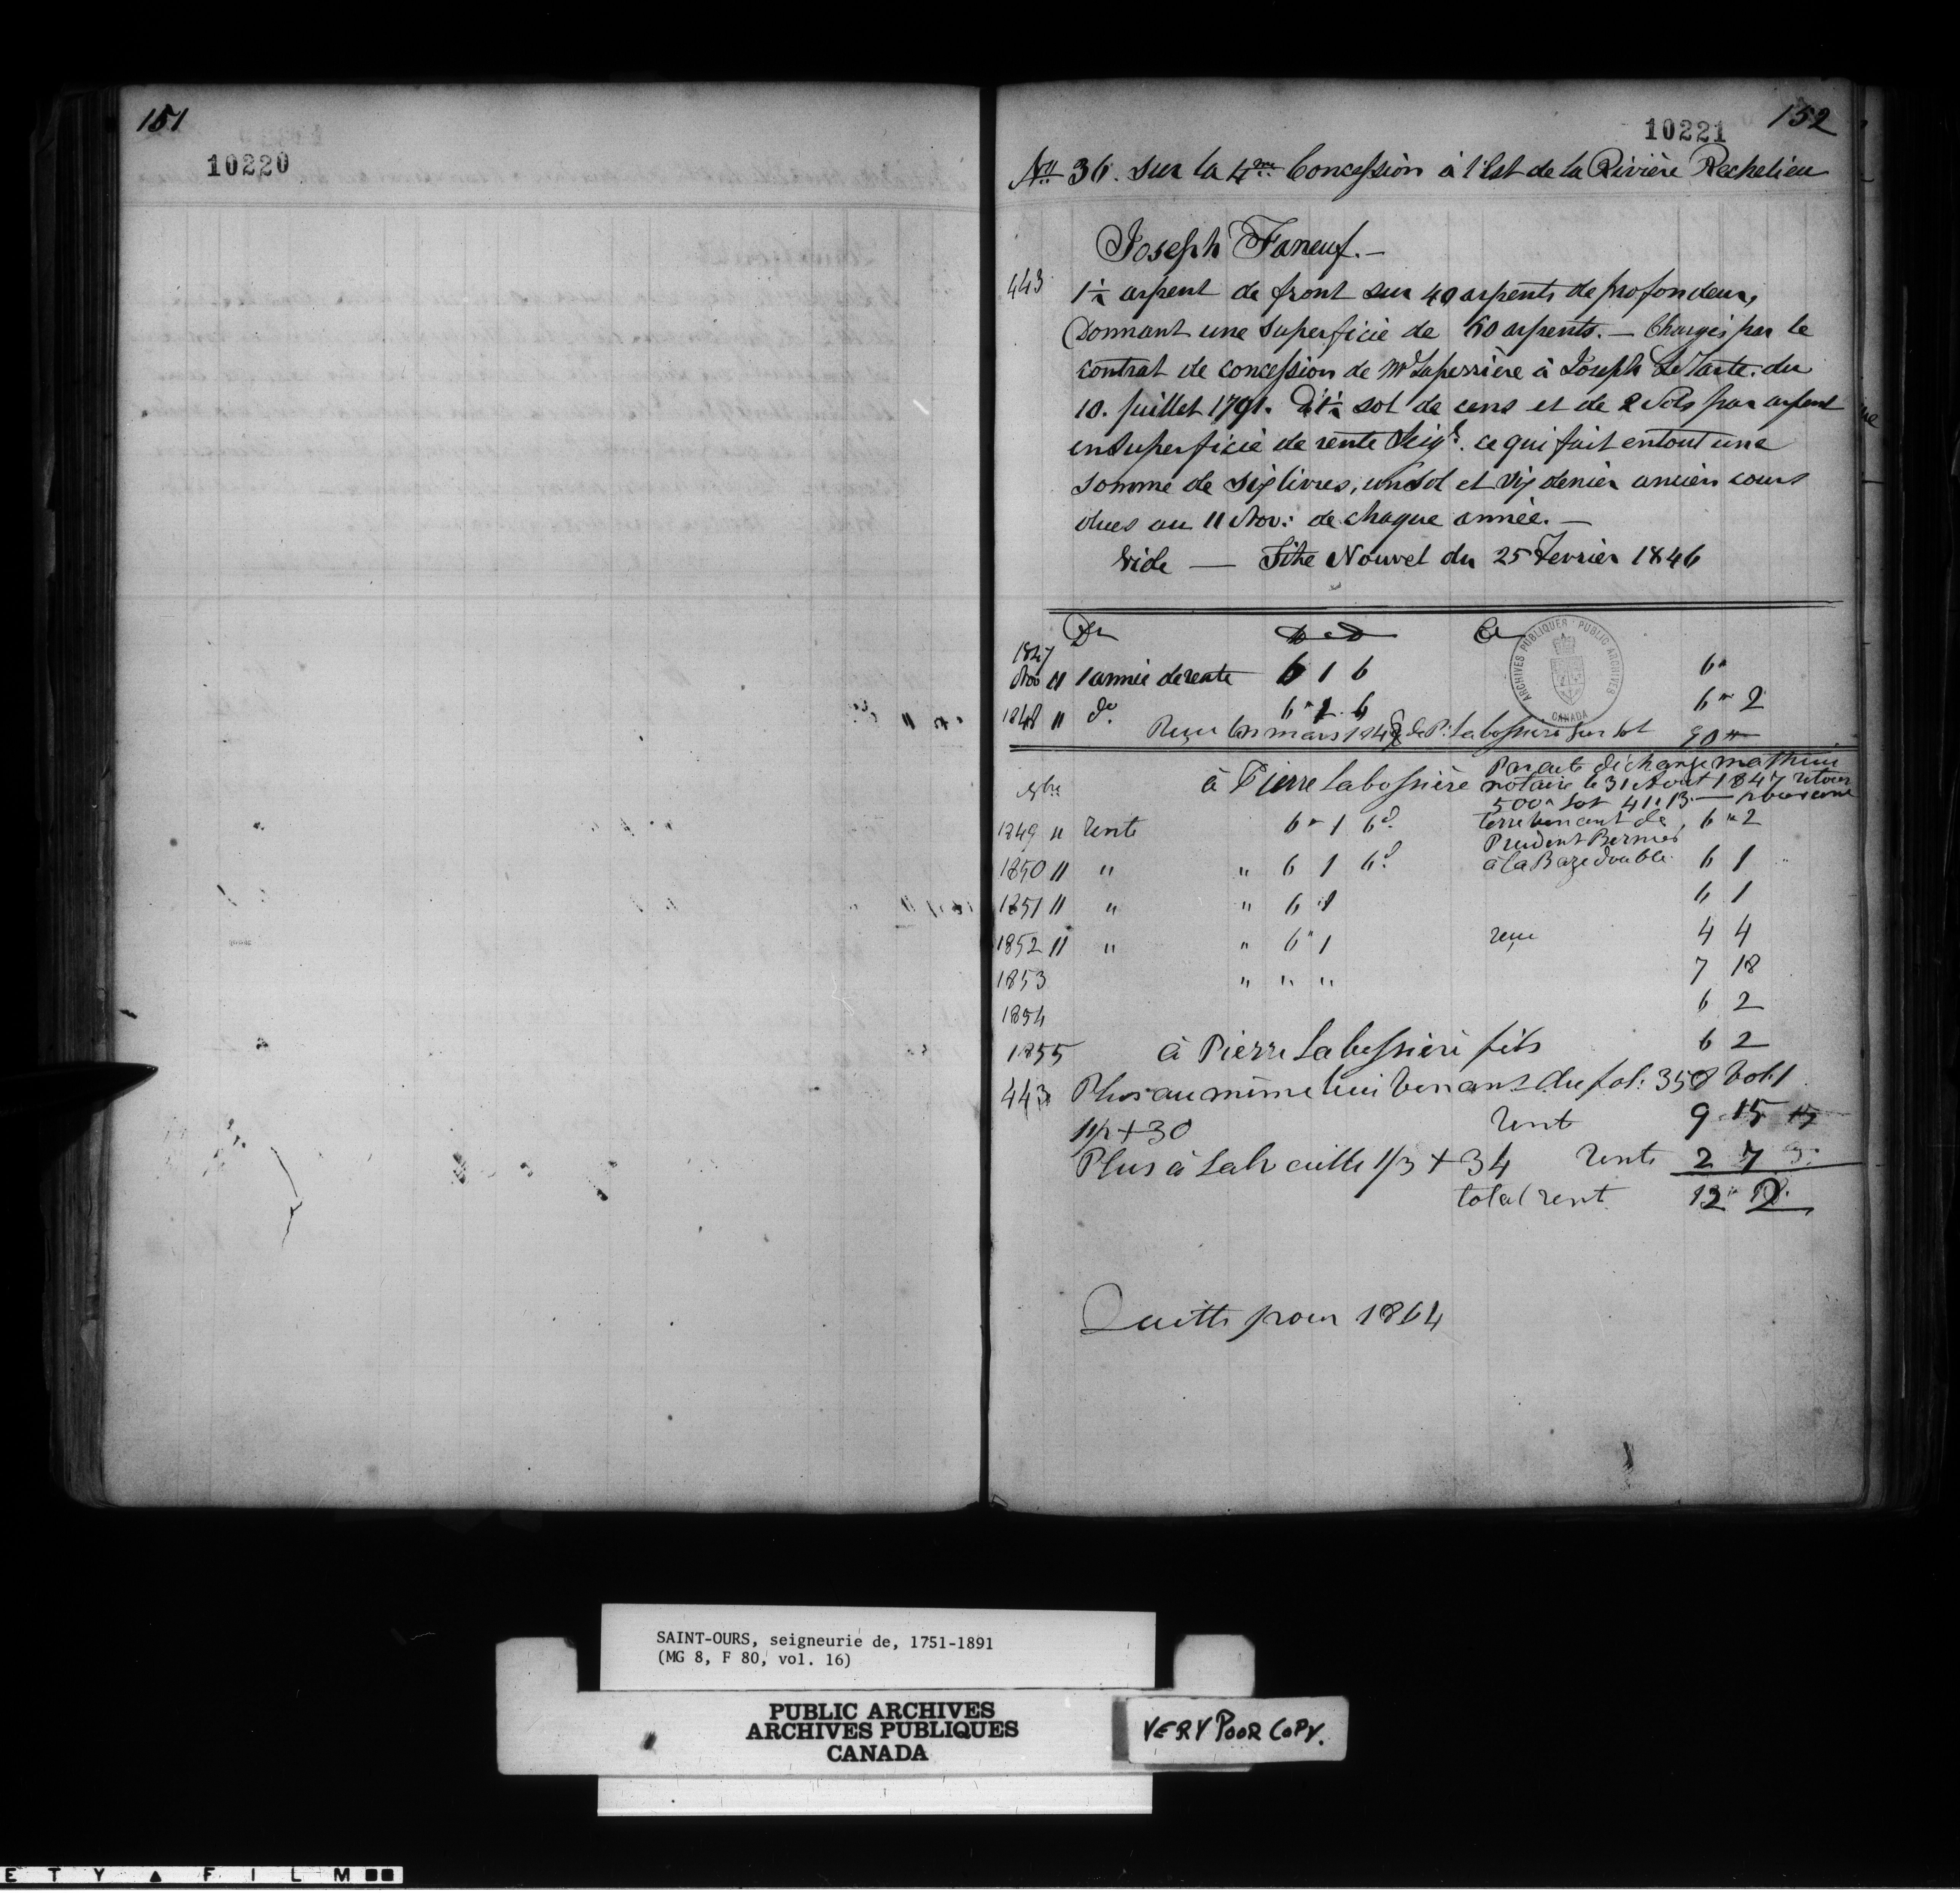 151
10220
152
10221
No 36. sur la 4me Concession à l'Est de la Rivière Rechelieu
Joseph Faneuf. —
443
1½ arpent de front sur 40 arpents de profondeur,
Donnant une superficie de 60 arpents. — Chargés par le
contrat de concession de Mr Laperrière à Joseph LeTarte. du
10. Juillet 1791. D'1½ sol de cens et de 2 Sols par arpent
en Superficie de rente Seigl. ce qui fait en tout une
somme de six livres, un sol et six denier ancien cours
dues au 11 Nov: de chaque année. —
Vide — Titre Nouvel du 25 Fevrier 1846
Dr Cr
1847
Nov 11 1 année de rente 6 1 6 6"
1848 11 do. 6 " 1 . 6 6 " 2
Reçu mars 1848 de P. Labossière sur lot 90
à Pierre Labossière Par acte d'échange Mathieu
notaire le 31 Aout 1847 retour
500" Lot 41 " 13 —
1849 11 rente 6 " 1 6d. terre venant de 6 " 2
Prudent Bernier
1850 11 " " 6 1 6d. à la Baze double 6 1
1851 11 " " 6 1 6 1
1852 11 " " 6 " 1 reçu 4 4
1853 " " " 7 18
1854 6 2
1855 à Pierre Labossière fils 6 2
443 Plus au même lui venant du fol: 358 Vol: 1
1 1/2 + 30 rent 9 . 15
Plus à 1/3 + 34 rente 2 7 3
total rent 12
Quitte pour 1864
ARCHIVES PUBLIQUES · PUBLIC ARCHIVES
CANADA
SAINT-OURS, seigneurie de, 1751-1891
(MG 8, F 80, vol. 16)
PUBLIC ARCHIVES
ARCHIVES PUBLIQUES
CANADA
VERY POOR COPY.
E T Y ▲ F I L M ■■